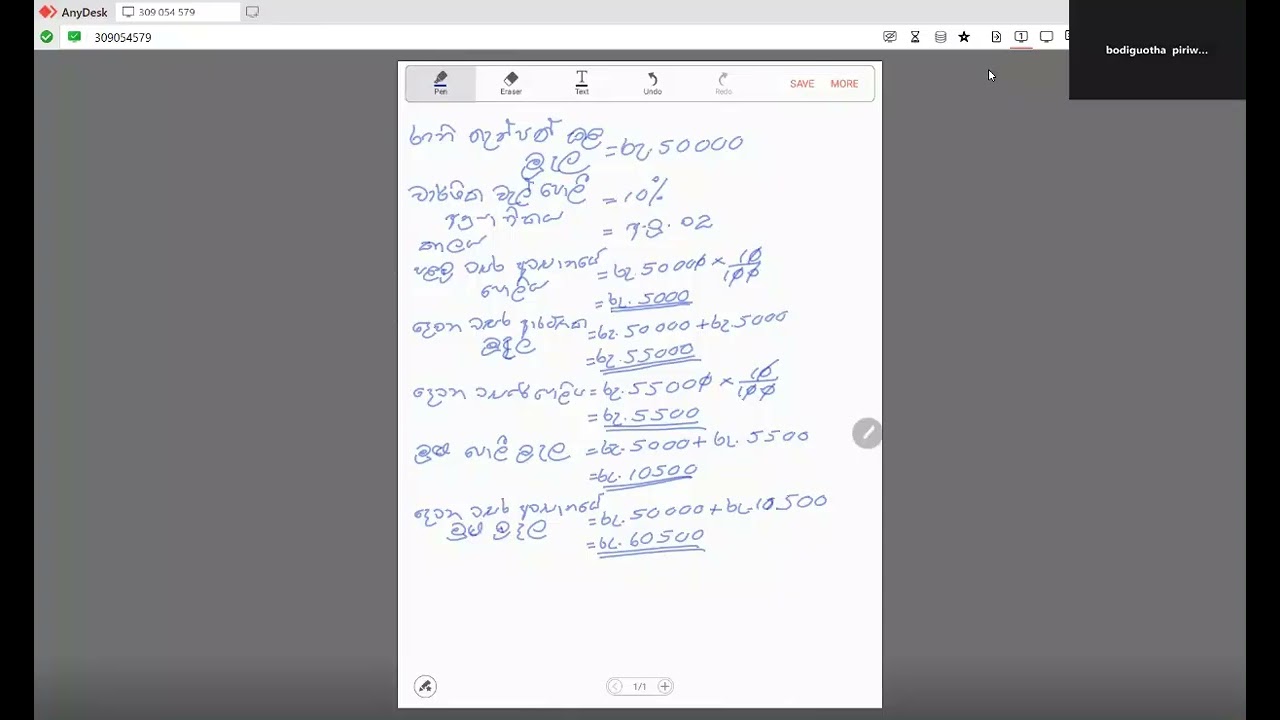 AnyDesk 309 054 579
309054579
bodiguotha piriw...
Pen Eraser Text Undo Redo SAVE MORE
රානි තැන්පත් කළ
මුදල = රු.50000
වාර්ශික වැල් පොලී = 10%
අනුපාතිකය
කාලය = අ.රු. 02
පළමු වසර අවසානයේ = රු.50000 × 10/100
පොලිය
= රු. 5000
දෙවන වසර ආරම්භක = රු. 50000 + රු.5000
මුදල
= රු.55000
දෙවන වසරේ පොලිය = රු.55000 × 10/100
= රු.5500
මුළු පොලී මුදල = රු.5000 + රු. 5500
= රු. 10500
දෙවන වසර අවසානයේ = රු. 50000 + රු.10500
මුළු මුදල
= රු. 60500
1/1